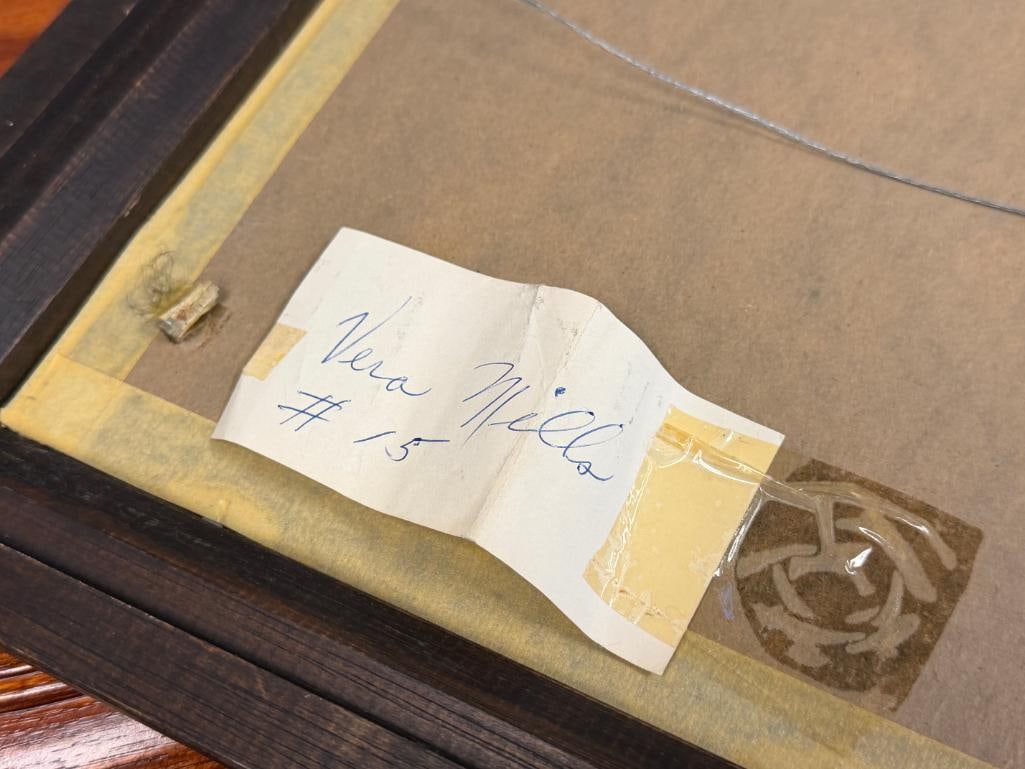 Vera Mills
# 15